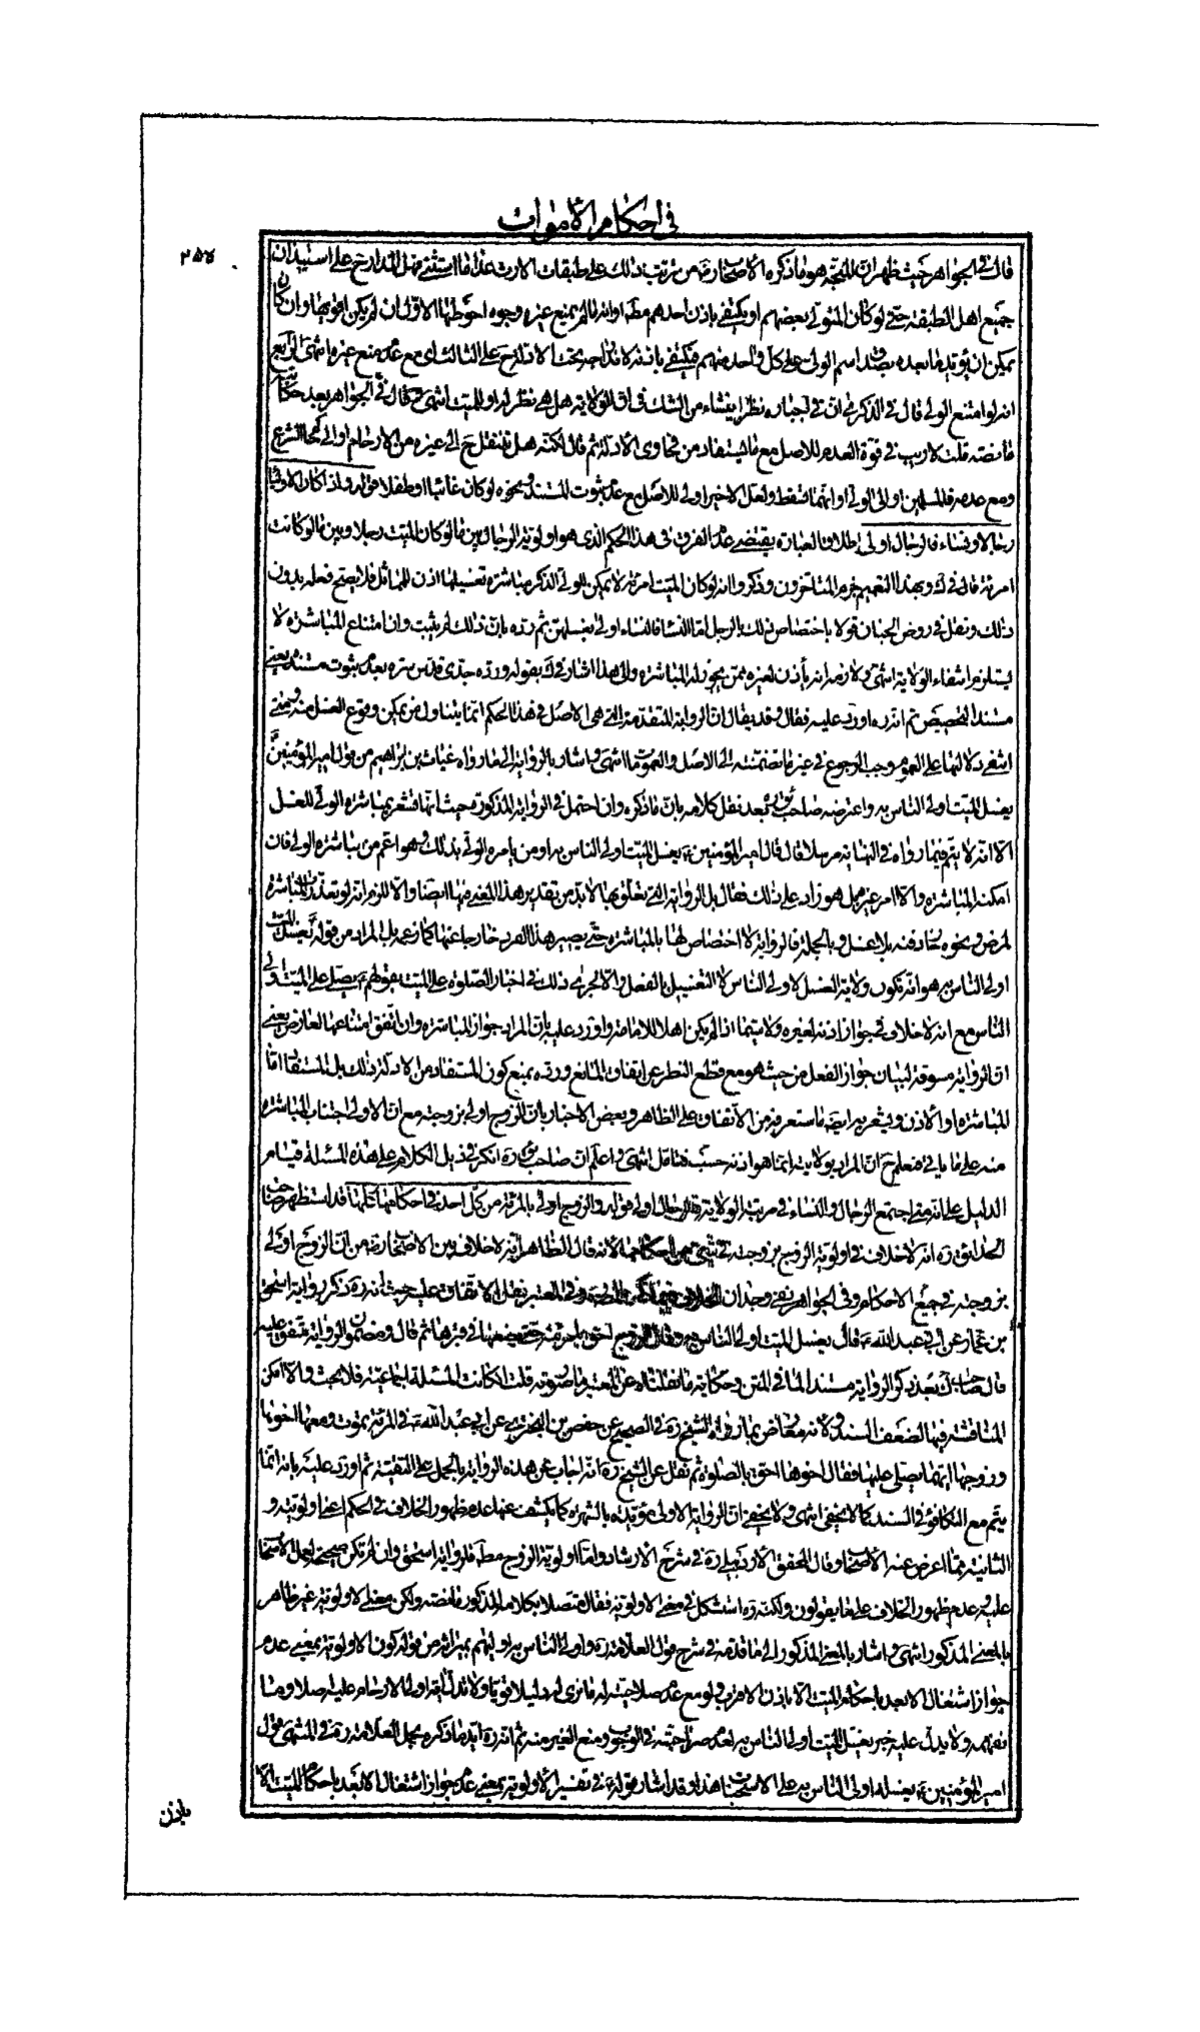 في احكام الأموات
قال في الجواهر حيث ظهر ان المتجه هو ما ذكره الاصحاب من ترتب ذلك على طبقات الارث عدا ما استثنى فهل المدار ح على استيذان
جميع اهل الطبقة حتى لو كان المتولي بعضهم او يكتفى باذن احدهم مطلقا او انه ما لم يمنع غيره وجوه احوطها الاول ان لم يكن اقويها وان كان
يمكن ان يؤيد ما بعده بصدق اسم الولي على كل واحد منهم فيكتفى باذنه لاندراجه تحت الادلة ح على الثالث اي مع عدم منع غيره انتهى الرابع
انه لو امتنع الولي قال في الذكرى ان في اجباره نظرا ينشاء من الشك في ان الولاية هل هي نظر له او للميت انتهى وقال في الجواهر بعد حكايته
ما نصه قلت لا ريب في قوة العدم للاصل مع ما يستفاد من فحاوى الأدلة ثم قال لكنه هل تنتقل ح الى غيره من الارحام او الى حاكم الشرع
ومع عدمه فللمسلمين او الى الولي او انها تسقط ولعل الاخير اولى للاصل مع عدم ثبوت المستند ونحوه لو كان غائبا او طفلا قوله واذا كان الاولياء
رجالا ونساء فالرجال اولى اطلاق العبارة يقتضي عدم الفرق في هذا الحكم الذي هو اولوية الرجال بين ما لو كان الميت رجلا وبين ما لو كانت
امرئة قال في ك وبهذا التعميم جزم المتأخرون وذكروا انه لو كان الميت امرئة لا يمكن للولي الذكر مباشرة تغسيلها اذن للمماثل فلا يصح فعله بدون
ذلك ونقل في روض الجنان قولا باختصاص ذلك بالرجل اما النساء فالنساء اولى بغسلهن ثم رده بان ذلك لم يثبت وان امتناع المباشرة لا
يستلزم انتفاء الولاية انتهى ولازمه انه يأذن لغيره ممن يجوز له المباشرة والى هذا اشار في ك بقوله ورده جدي قدس سره بعدم ثبوت مستنده يعني
مستند التخصيص ثم انه ره اورد عليه فقال وقد يقال ان الرواية المتقدمة التي هي الاصل في هذا الحكم انما يتناول من يمكن وقوع الغسل منه ومتى
انتفى دلالتها على العموم وجب الرجوع في غير ما تضمنته الى الاصل والعمومات انتهى واشار بالرواية الى ما رواه غياث بن ابراهيم من قول امير المؤمنين ع
يغسل الميت اولى الناس به واعترضه صاحب ئق ره بعد نقل كلامه بان ما ذكره وان احتمل في الرواية المذكورة حيث انها تشعر بمباشرة الولي للغسل
الا انه لا يتم فيما رواه في النهاية مرسلا قال قال امير المؤمنين ع يغسل الميت اولى الناس به او من يأمره الولي بذلك وهو اعم من مباشرة الولي فان
امكنه المباشرة والا امر غيره بل هو زاد على ذلك فقال بل الرواية التي تعلق بها لابد من تقدير هذا المعنى فيها ايضا والا للزم انه لو تعذرت المباشرة
لمرض ونحوه جاز دفنه بلا غسل وبالجملة فالرواية لا اختصاص لها بالمباشرة حتى يصير هذا الفرد خارجا عنها كما زعمه بل المراد من قوله ع يغسل الميت
اولى الناس به هو انه تكون ولاية الغسل لاولى الناس لا التغسيل بالفعل والا لجرى ذلك في اخبار الصلوة على الميت بقولهم ع يصلي على الميت اولى
الناس مع انه لا خلاف في جواز اذنه لغيره ولا سيما اذا لم يكن اهلا للامامة واورد عليه بان المراد جواز المباشرة وان اتفق امتناعها لعارض يعني
ان الرواية مسوقة لبيان جواز الفعل من حيث هو مع قطع النظر عن اتفاق المانع ورده بمنع كون المستفاد من الادلة ذلك بل المستفاد اما
المباشرة او الأذن ويشعر به ايضا ما ستعرفه من الاتفاق على الظاهر وبعض الاخبار بان الزوج اولى بزوجته مع ان الاولى اجتناب المباشرة
منه على ما يأتي فعلم ح ان المراد بولايته انما هو اذنه حسب فتأمل انتهى واعلم ان صاحب ئق ره انكر في ذيل الكلام على هذه المسئلة قيام
الدليل على انه متى اجتمع الرجال والنساء في مرتبة الولاية فالرجال اولى قوله والزوج اولى بالمرئة من كل احد في احكامها كلها قد استظهر صاحب
الحدائق ره انه لا خلاف في اولوية الزوج بزوجته في شيء من احكامها لانه قال الظاهر انه لا خلاف بين الاصحاب رض من ان الزوج اولى
بزوجته في جميع الاحكام وفي الجواهر نفي وجدان الخلاف وفي المعتبر نقل الاتفاق عليه حيث انه ره ذكر رواية اسحق
بن عمار عن ابي عبد الله ع قال يغسل الميت اولى الناس به وقال الزوج احق بامرئته حتى يضعها في قبرها ثم قال ومضمون الرواية متفق عليه
قال صاحب ك بعد ذكر الرواية مستندا لما في المتن وحكاية ما نقلناه عن المعتبر ما صورته قلت ان كانت المسئلة اجماعية فلا بحث والا امكن
المناقشة فيها لضعف السند ولانه معارض بما رواه الشيخ ره في الصحيح عن حفص بن البختري عن ابي عبد الله ع في المرئة تموت ومعها اخوها
وزوجها ايهما يصلي عليها فقال اخوها احق بالصلوة ثم نقل عن الشيخ ره انه اجاب عن هذه الرواية بالحمل على التقية ثم اورد عليه بانه انما
يتم مع التكافؤ في السند كما لا يخفى انتهى ولا يخفى ان الرواية الاولى مؤيدة بالشهرة كما يكشف عنها عدم ظهور الخلاف في الحكم اعني اولويته و
الثانية مما اعرض عنه الأصحاب وقال المحقق الأردبيلي ره في شرح الارشاد واما اولوية الزوج مطلقا فلرواية اسحق وان لم تكن صحيحة لعمل الأصحاب
عليه عدم ظهور الخلاف على ما يقولون ولكنه ره استشكل في معنى الاولوية فقال متصلا بكلامه المذكور ما نصه ولكن معنى الاولوية غير ظاهر
بالمعنى المذكور انتهى واشار بالمعنى المذكور الى ما قدمه في شرح قول العلامة ره واولى الناس به اوليهم بميراثه من قوله كون الاولوية بمعنى عدم
جواز اشتغال الابعد باحكام الميت الا باذن الاقرب ولو مع عدم صلاحيته له ما نرى له دليلا قويا ولا تدل آية اولى الارحام عليه اصلا وما
نفهمه ولا يدل عليه خبر يغسل الميت اولى الناس به لعدم صراحته في الوجوب ومنع الغير منه ثم انه ره ايد ما ذكره بحمل العلامة ره في المنتهى قول
امير المؤمنين ع يغسله اولى الناس به على الاستحباب هذا وقد اشار بقوله في تفسير الأولوية بمعنى عدم جواز اشتغال الابعد باحكام الميت الا
باذن